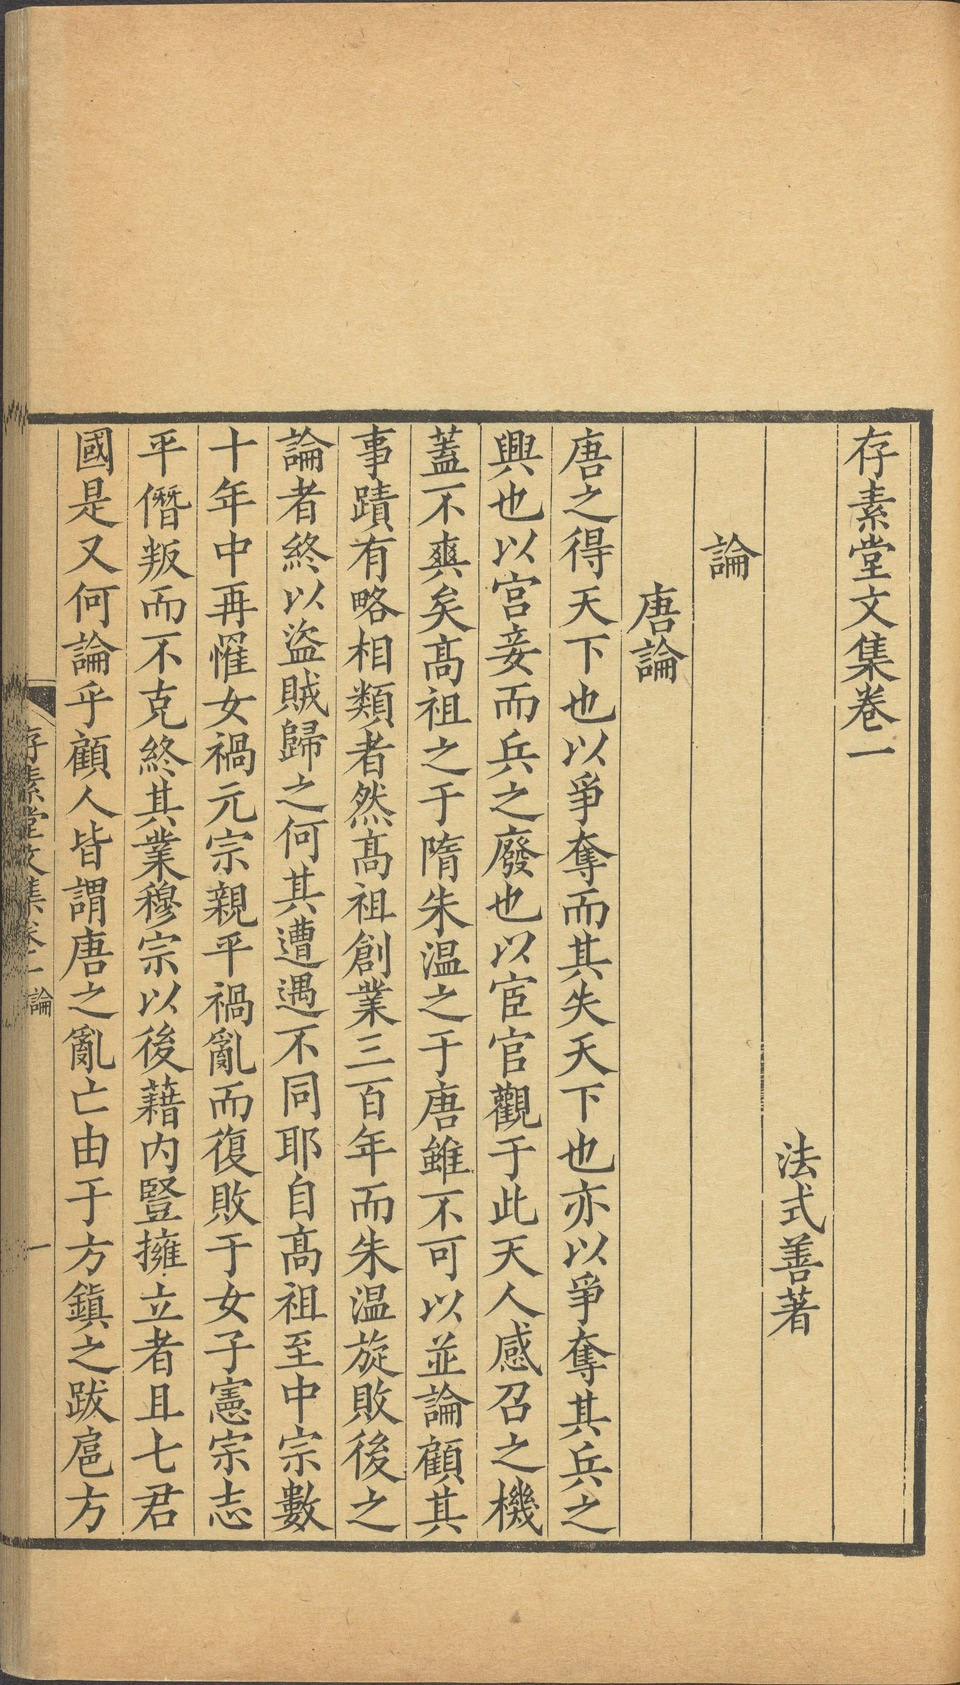 存素堂文集卷一
法式善著
論
唐論
唐之得天下也以爭奪而其失天下也亦以爭奪其兵之
興也以宮妾而兵之廢也以宦官觀于此天人感召之機
蓋不爽矣高祖之于隋朱溫之于唐雖不可以並論顧其
事蹟有略相類者然高祖創業三百年而朱溫旋敗後之
論者終以盜賊歸之何其遭遇不同耶自高祖至中宗數
十年中再罹女禍元宗親平禍亂而復敗于女子憲宗志
平僭叛而不克終其業穆宗以後藉內豎擁立者且七君
國是又何論乎顧人皆謂唐之亂亡由于方鎮之跋扈方
存素堂文集卷一 論 一